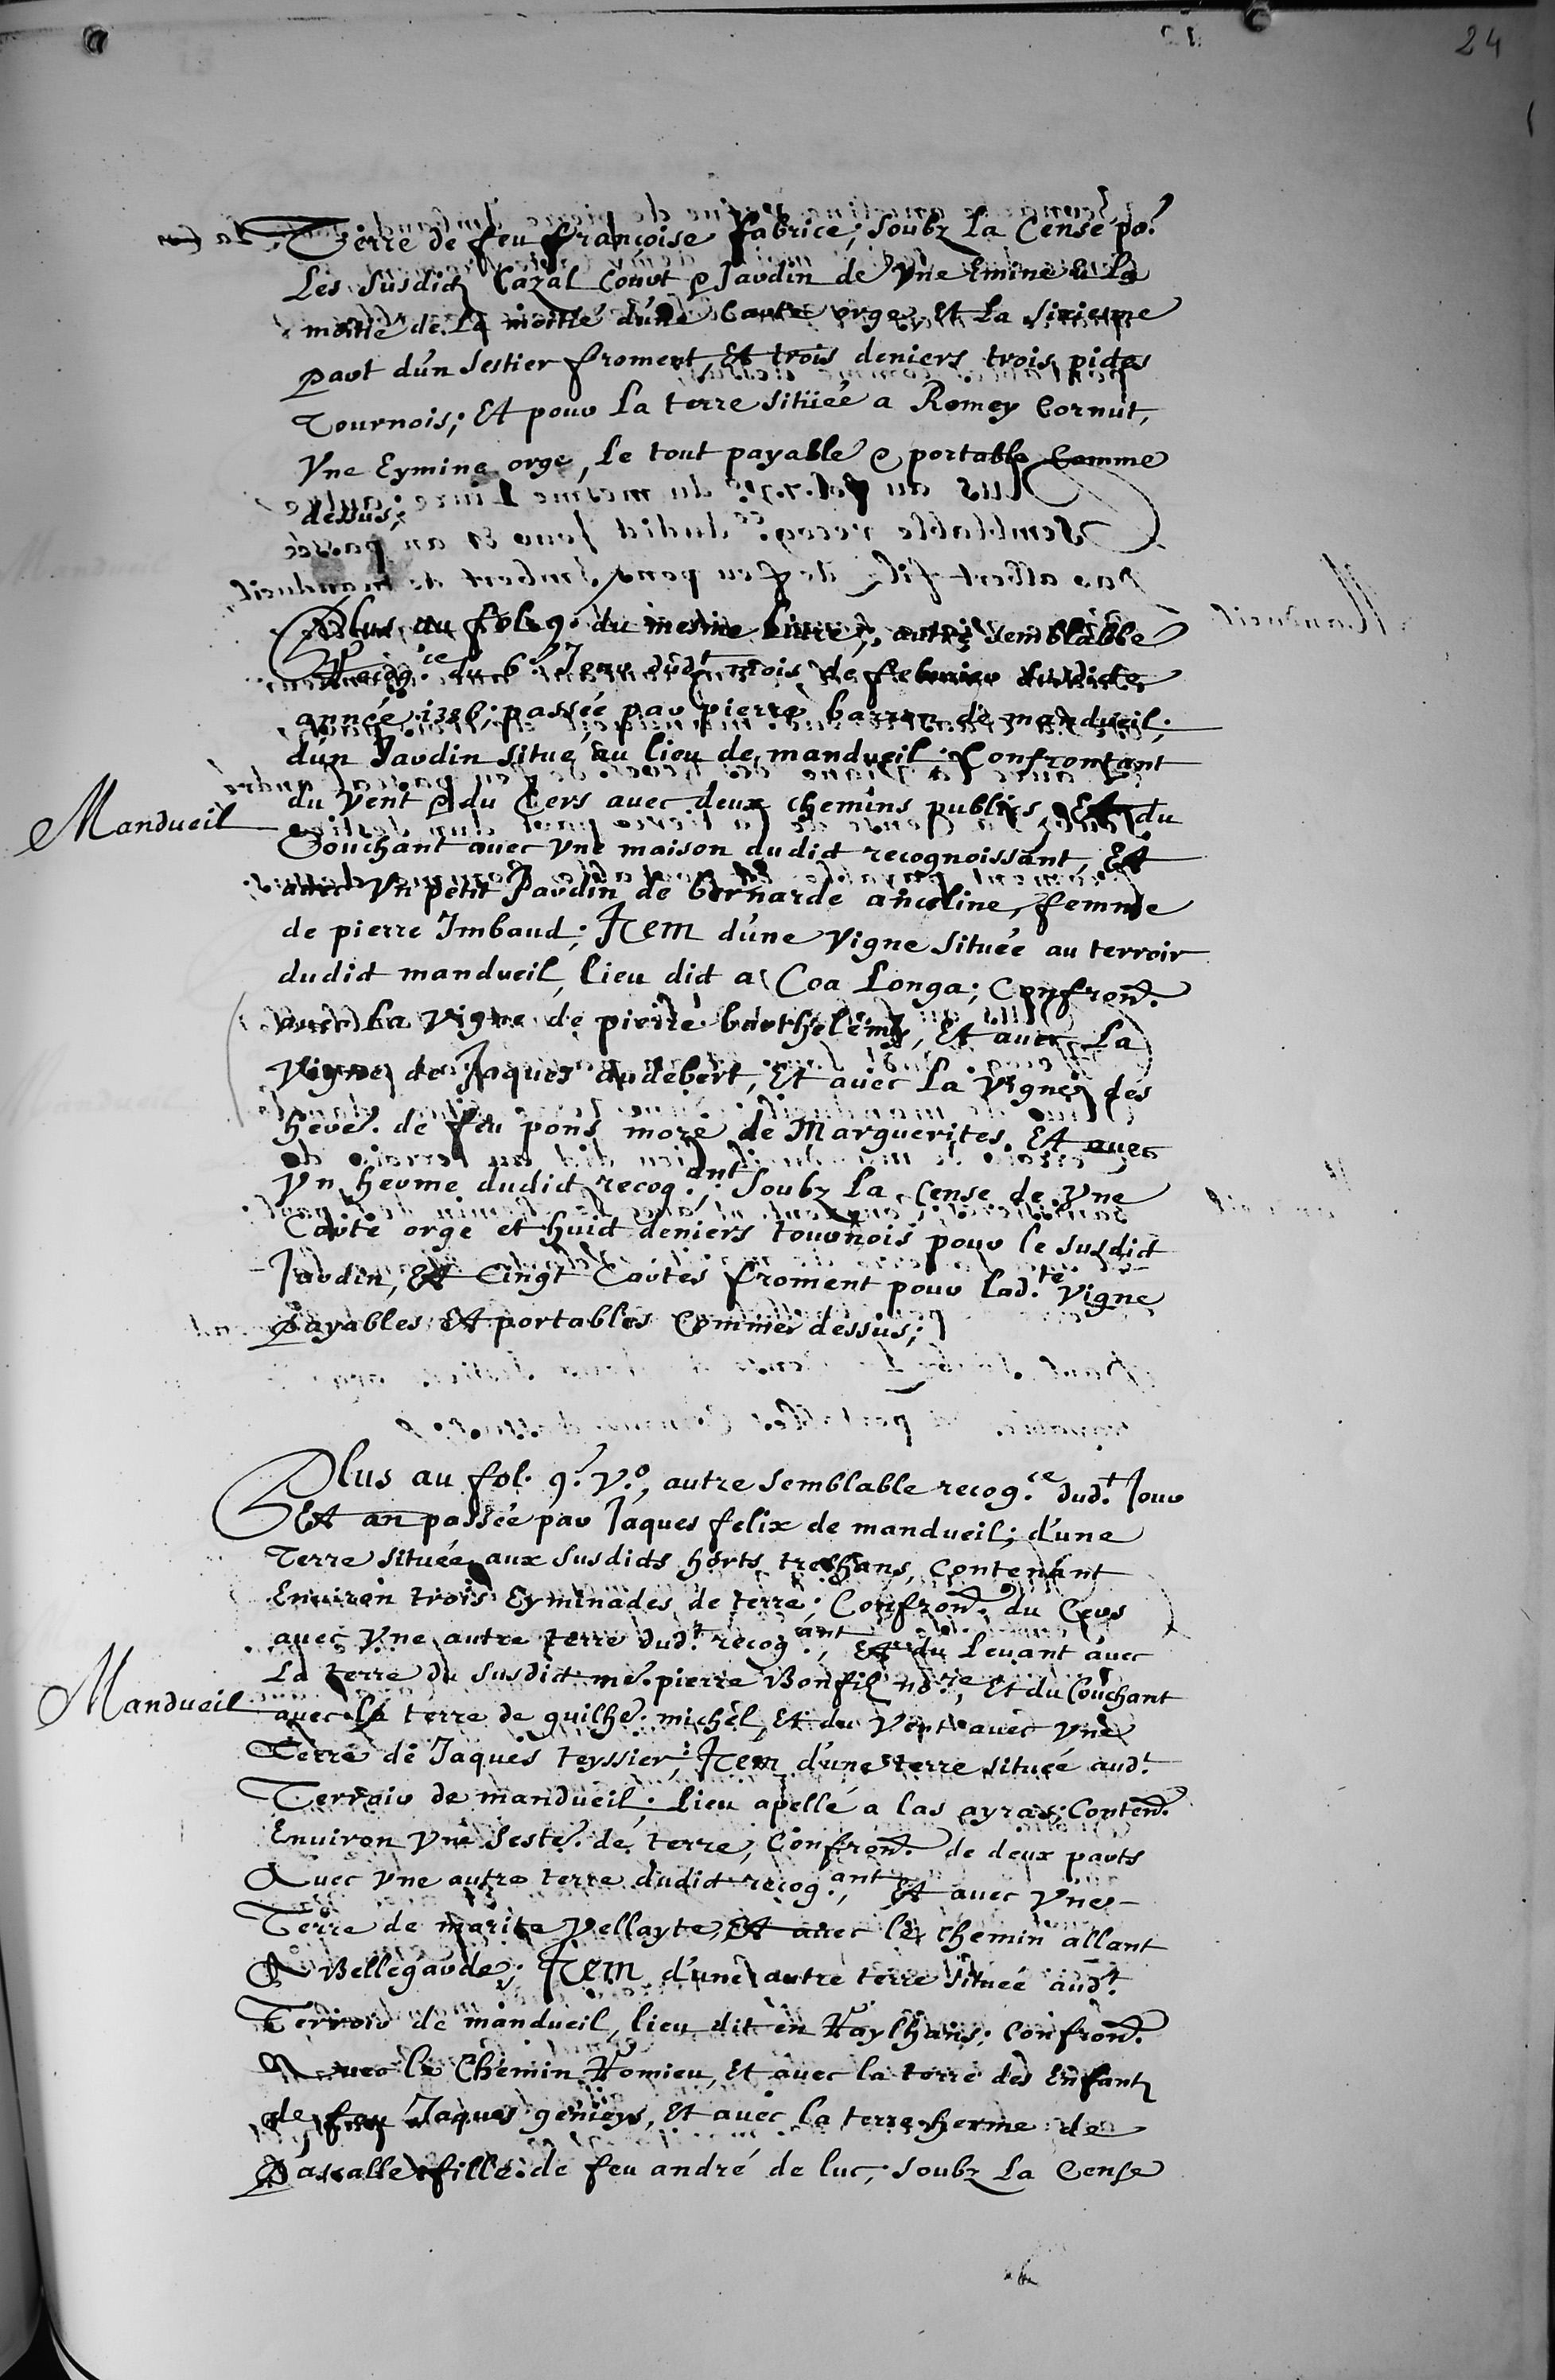 24
Terre de feu françoise fabrice; soubz La Cense po.r
Les susdictz Cazal Court & Jardin de Vne Emine & la
moitié de La moitié d'une Carte orge, Et La sixiesme
part d'un sestier froment, Et trois deniers trois pictes
Tournois; Et pour La terre sitüée a Romey Cornut,
Vne Eymine orge, Le tout payable & portable Comme
dessus;
Plus au fol. 9. du mesme Liure, autre semblable
Recog.ce du 6.e Jour dud.t mois de februier susdicte
année passée par pierre barren de mandueil;
d'un Jardin situé au lieu de mandueil Confrontant
du Vent & du Cers auec deux chemins publics, Et du
Mandueil
Couchant auec vne maison dudict recognoissant, Et
auec Vn petit Jardin de bernarde anceline, femme
de pierre Imbaud; Item d'une Vigne située au terroir
dudict mandueil, lieu dict a Coa Longa; Confron.t
auec La Vigne de pierre barthelemy, Et auec La
Vigne de Jaques audebert, Et auec La Vigne des
here.s de feu pons moré de Marguerites, Et auec
Vn herme dudict recog.ant; soubz La Cense de Vne
Carte orge et huict deniers tournois pour le susdict
Jardin, Et Cingt Cartes froment pour lad.te Vigne
Payables Et portables Comme dessus;
Plus au fol. 9. V.o, autre semblable recog.ce dud.t Jour
Et an passée par Jaques felix de mandueil; d'une
Terre située aux susdicts horts treshans, Contenant
Enuiron trois Eyminades de terre; Confron.t du Cers
auec Vne autre terre dud.t recog.ant, Et du Leuant auec
La terre du susdict me. pierre Bonfilz no.re, Et du Couchant
Mandueil
auec la terre de guilhe. michel, Et du Vent auec Vne
Terre de Jaques teyssier; Item d'une terre située aud.t
Terroir de mandueil; Lieu apellé a las ayras; Conten.t
Enuiron Vne seste. de terre, Confron.t de deux parts
Auec Vne autre terre dudict recog.ant, Et auec Vne
Terre de marita Vellayte, Et auec le chemin allant
A Bellegarde; Item d'une autre terre située aud.t
Terroir de mandueil, lieu dit en Raylhans; Confron.t
Auec le Chemin Romieu, Et auec la terre des Enfantz
de feu Jaques genieys, Et auec la terre herme de
Pascalle fille de feu andré de luc; soubz La Cense